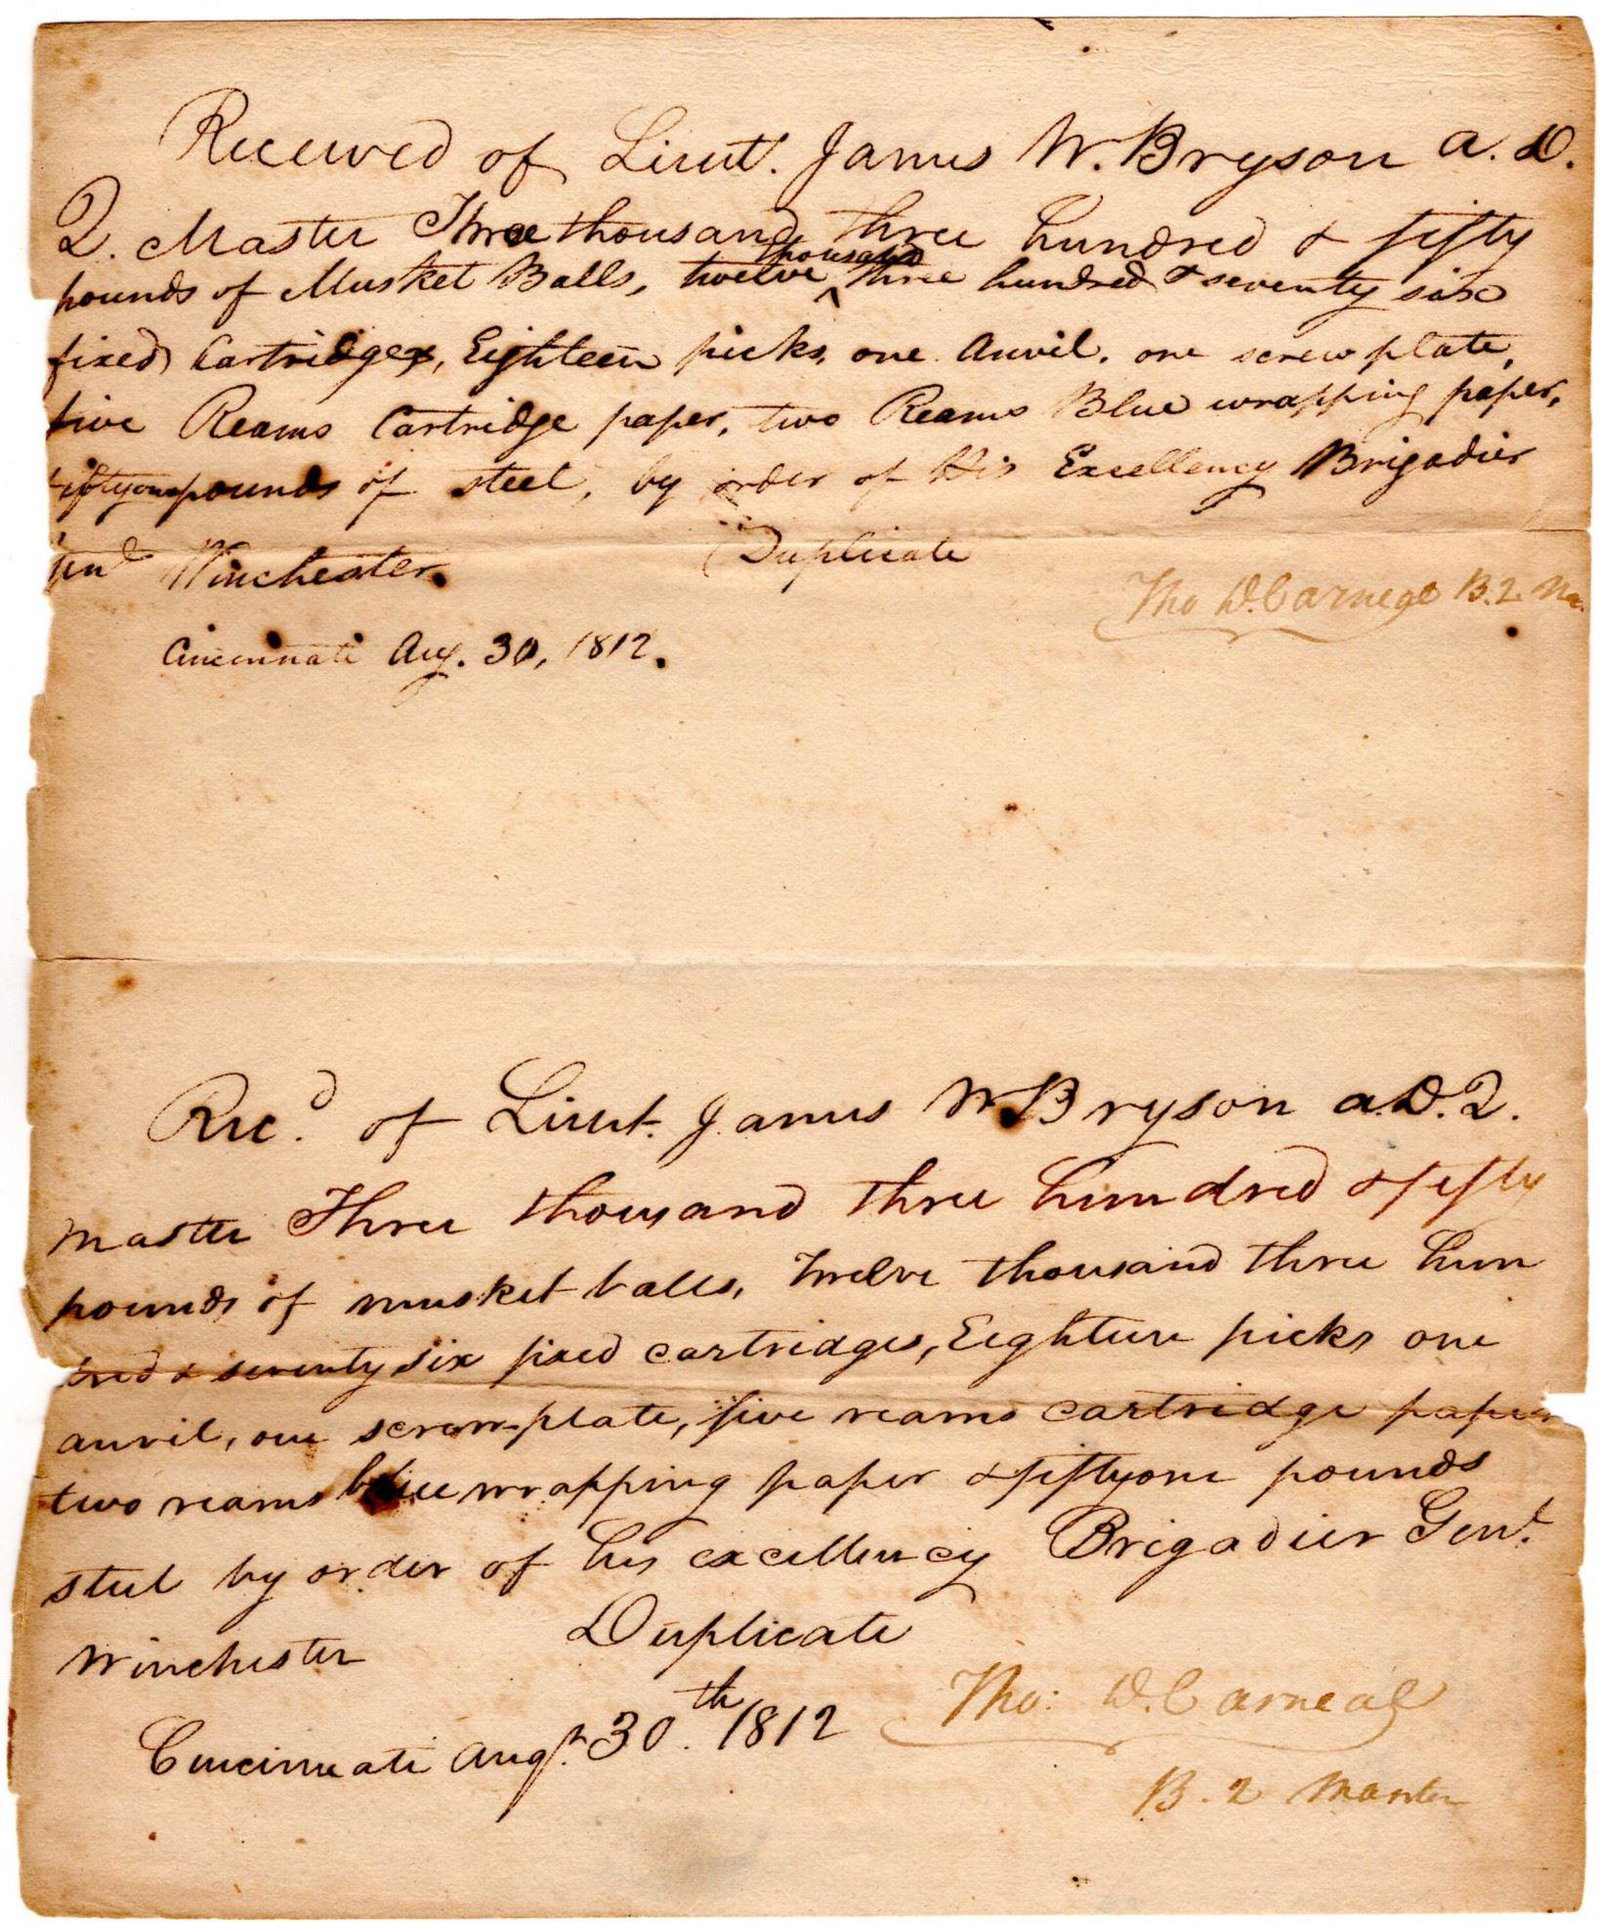 Received of Lieut. James W. Bryson A. D.
Q. Master Three thousand three hundred & fifty
pounds of Musket Balls, twelve ^thousand three hundred & seventy six
fixed Cartridges, Eighteen picks, one Anvil, one screw plate,
five Reams Cartridge paper, two Reams Blue wrapping paper,
fiftyone pounds of steel, by order of His Excellency Brigadier
Genl Winchester.
Duplicate
Tho D. Carneal B. Q. Ma.
Cincinnati Aug. 30, 1812.
Recd. of Lieut. James W Bryson A.D.Q.
Master Three thousand three hundred & fifty
pounds of musket balls, Twelve thousand three hun
dred & seventy six fixed cartridges, Eighteen picks one
anvil, one screw-plate, five reams cartridge paper
two reams blue wrapping paper & fiftyone pounds
steel by order of his excellency Brigadier Genl.
Winchester
Duplicate
Tho: D. Carneal
Cincinnati Augt. 30th. 1812
B. Q Master